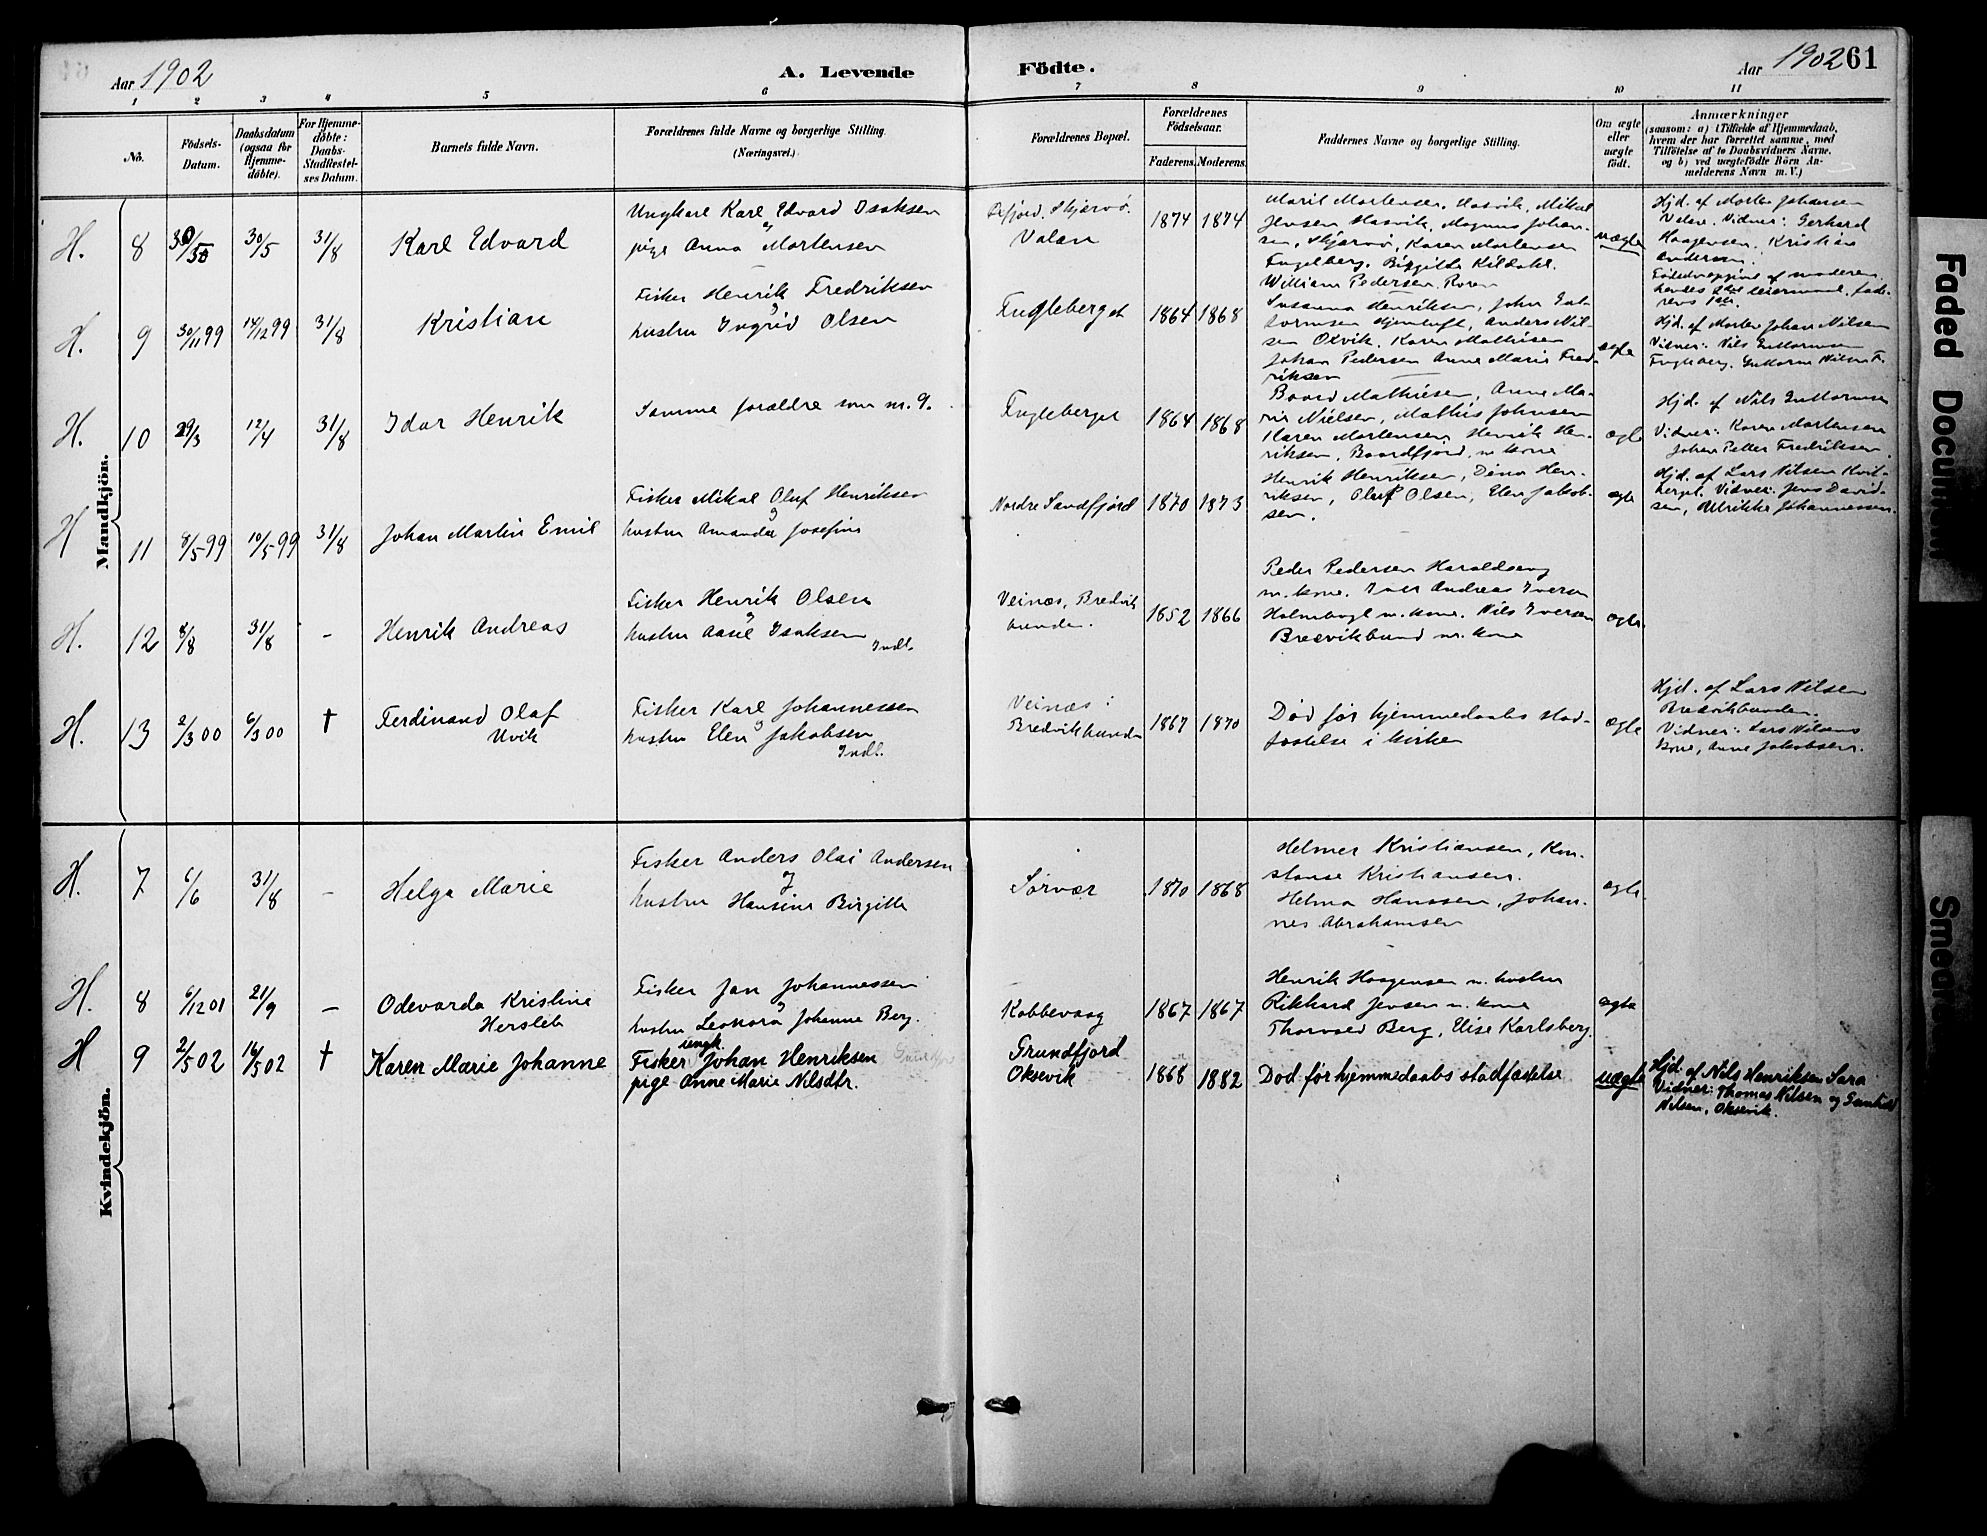 Aar 1902
A. Levende
Födte.
Aar 1902 61
1 2 3 4 5 6 7 8 9 10 11
No.
Födsels-
Datum.
Daabsdatum
(ogsaa for
Hjemme-
döbte).
For Hjemme-
döbte:
Daabs-
Stadfæstel-
ses Datum.
Barnets fulde Navn.
Forældrenes fulde Navne og borgerlige Stilling.
(Næringsvei.)
Forældrenes Bopæl.
Forældrenes
Födselsaar.
Faderens. Moderens.
Faddernes Navne og borgerlige Stilling.
Om ægte
eller
uægte
födt.
Anmærkninger
(saasom: a) i Tilfælde af Hjemmedaab,
hvem der har forrettet samme, med
Tilföielse af to Daabsvidners Navne.
og b) ved uægtefödte Börn An-
melderens Navn m. V.)
Mandkjön.
H. 8 30/5 31/8 Karl Edvard
Ungkarl Karl Edvard Isaksen
og
pige Anna Mortensen
Skjærvö.
Valan
1874 1874
Marit Mortensen, Hasvik, Mikal
Jensen Hasvik, Magnus Johan-
sen, Skjærvö, Karen Mortensen
Fuglberg, Birgitte Kildahl.
uægte
Hjd. af Morten Johansen
Valan. Vidner: Gerhard
Haagensen, Kristian
Andersen.
Födsel opgivet af moderen
H. 9 30/11 99 14/12 99 31/8 Kristian
Fisker Henrik Fredriksen
og
hustru Ingrid Olsen
Fugleberget
1864 1868
William Pedersen, Roren
Susanna Henriksen, John Gut-
tormsen Hjemluft, Anders Nil-
sen Oxvik, Karen Mathisen
Johan Pedersen Anne Marie Fred-
riksen
ægte
Hjd. af Morten Johan Nilsen
Vidner: Nils Guttormsen
Fugleberg, Guttorm Nilsen F.
H. 10 29/3 12/4 31/8 Idar Henrik
Samme forældre som nr. 9.
Fugleberget
1864 1868
Baard Mathisen, Anne Ma-
rie Nielsen, Mathis Johnsen
Karen Mortensen, Henrik Hen-
riksen, Baardfjord, m kone
ægte
Hjd. af Nils Guttormsen
Vidner: Karen Mortensen
Johan Petter Fredriksen
H 11 8/5 99 10/5 99 31/8 Johan Martin Emil
Fisker Mikal Oluf Henriksen
og
hustru Amanda Josefine
Nordre Sandfjord
1870 1873
Henrik Henriksen, Dina Hen-
riksen, Oluf Olsen, Elen Jakob-
sen.
ægte
Hjd. af Lars Nilsen Kvit-
berget. Vidner: Jens David-
sen, Ulrikke Johannessen.
H. 12 8/8 31/8 – Henrik Andreas
Fisker Henrik Olsen
og
hustru Aasel Isaksen
Indl.
Veinæs, Bredvik
bunden.
1852 1866
Peder Pedersen Haraldseng
m. kone. Iver Andreas Iversen
Holmbugt m. kone. Nils Iversen
Bredvikbund m. kone
ægte.
H. 13 2/3 00 6/3 00 † Ferdinand Olaf
Uvik
Fisker Karl Johannessen
og
hustru Elen Jakobsen
Indl.
Veinæs i
Bredvikbunden
1867 1870
Död för hjemmedaabs stad-
fæstelse i kirken
ægte
Hjd. af Lars Nilsen
Bredvikbunden.
Vidner: Lars Nilsens
kone, Anne Jakobsen.
Kvindekjön.
H. 7 6/6 31/8 – Helga Marie
Fisker Anders Olai Andersen
og
hustru Hansine Birgitte
Sörvær
1870 1868
Helmer Kristiansen, Kon-
stanse Kristiansen.
Helma Hanssen, Johan-
nes Abrahamsen
ægte.
H. 8 6/12 01 21/9 – Odevarda Kristine
Hersleb
Fisker Jan Johannessen
og
hustru Leonora Johanne Berg.
Kobbevaag
1867 1867
Henrik Haagensen m. hustru
Rikhard Jensen m. kone
Thorvald Berg, Elise Karlsberg.
ægte
H 9 2/5 02 16/5 02 † Karen Marie Johanne
ungk.
Fisker Johan Henriksen
pige Anne Marie Nilsdtr.
Grundfjord
Oksevik
1868 1882
Död för hjemmedaabs stadfæstelse
uægte
Hjd. af Nils Henriksen Sara
Vidner: Thomas Nilsen og
Nilsen, Oksevik.
Faded Document
Smeared